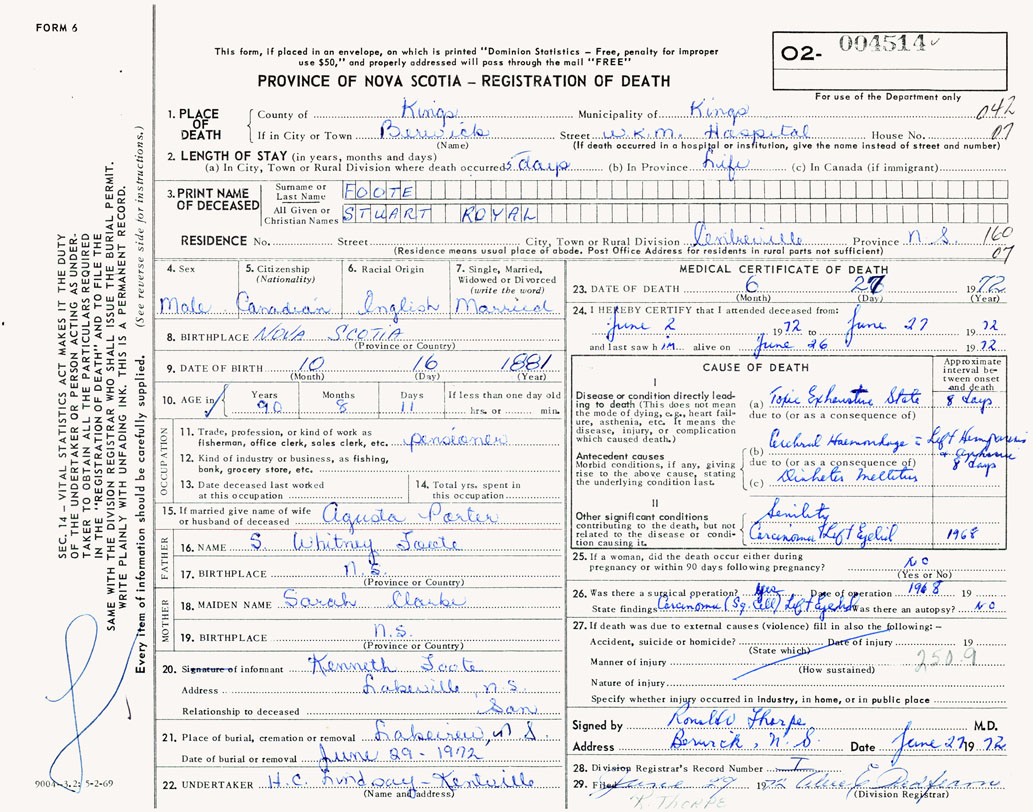 FORM 6
This form, if placed in an envelope, on which is printed "Dominion Statistics – Free, penalty for improper
use $50," and properly addressed will pass through the mail "FREE"
PROVINCE OF NOVA SCOTIA – REGISTRATION OF DEATH
O2- 004514
For use of the Department only
1. PLACE OF DEATH
County of Kings Municipality of Kings 042
If in City or Town Berwick Street W.K.M. Hospital House No. 07
(Name) (If death occurred in a hospital or institution, give the name instead of street and number)
2. LENGTH OF STAY (in years, months and days)
(a) In City, Town or Rural Division where death occurred 5 days (b) In Province Life (c) In Canada (if immigrant)
3. PRINT NAME OF DECEASED
Surname or Last Name FOOTE
All Given or Christian Names STUART ROYAL
RESIDENCE No. Street City, Town or Rural Division Centreville Province N.S. 160
(Residence means usual place of abode. Post Office Address for residents in rural parts not sufficient) 07
4. Sex 5. Citizenship (Nationality) 6. Racial Origin 7. Single, Married, Widowed or Divorced (write the word)
Male Canadian English Married
8. BIRTHPLACE NOVA SCOTIA
(Province or Country)
9. DATE OF BIRTH 10 16 1881
(Month) (Day) (Year)
10. AGE in Years Months Days If less than one day old
90 8 11 hrs. or min.
OCCUPATION
11. Trade, profession, or kind of work as
fisherman, office clerk, sales clerk, etc. pensioner
12. Kind of industry or business, as fishing,
bank, grocery store, etc.
13. Date deceased last worked
at this occupation
14. Total yrs. spent in
this occupation
15. If married give name of wife
or husband of deceased Agusta Porter
FATHER
16. NAME S. Whitney Foote
17. BIRTHPLACE N.S.
(Province or Country)
MOTHER
18. MAIDEN NAME Sarah Clarke
19. BIRTHPLACE N.S.
(Province or Country)
20. Signature of informant Kenneth Foote
Address Lakeville, N.S.
Relationship to deceased Son
21. Place of burial, cremation or removal Lakeview, N S.
Date of burial or removal June 29 - 1972
22. UNDERTAKER H.C. Lindsay - Kentville
(Name and address)
MEDICAL CERTIFICATE OF DEATH
23. DATE OF DEATH 6 27 1972
(Month) (Day) (Year)
24. I HEREBY CERTIFY that I attended deceased from:
June 2 1972 to June 27 1972
and last saw him alive on June 26 1972
CAUSE OF DEATH
Approximate interval between onset and death
I
Disease or condition directly leading to death (This does not mean the mode of dying, e.g., heart failure, asthenia, etc. It means the disease, injury, or complication which caused death.)
(a) Toxic Exhaustive State 8 days
due to (or as a consequence of)
Antecedent causes
Morbid conditions, if any, giving rise to the above cause, stating the underlying condition last.
(b) Cerebral Haemorrhage = Left Hemiparesis + aphasia 8 days
due to (or as a consequence of)
(c) Diabetes Mellitus
II
Other significant conditions contributing to the death, but not related to the disease or condition causing it.
Senility
Carcinoma Left Eyelid 1968
25. If a woman, did the death occur either during
pregnancy or within 90 days following pregnancy? No
(Yes or No)
26. Was there a surgical operation? Yes Date of operation 1968 19
State findings Carcinoma (Sq. Cell) Left Eyelid Was there an autopsy? No
27. If death was due to external causes (violence) fill in also the following: –
Accident, suicide or homicide? Date of injury 19
(State which)
Manner of injury 250.9
(How sustained)
Nature of injury
Specify whether injury occurred in industry, in home, or in public place
Signed by Ronald Thorpe M.D.
Address Berwick, N.S. Date June 27 1972
28. Division Registrar's Record Number
29. Filed June 29 1972
(Division Registrar)
R. THORPE
SEC. 14 – VITAL STATISTICS ACT MAKES IT THE DUTY
OF THE UNDERTAKER OR PERSON ACTING AS UNDER-
TAKER TO OBTAIN ALL THE PARTICULARS REQUIRED
IN THE "REGISTRATION OF DEATH" AND TO FILE THE
SAME WITH THE DIVISION REGISTRAR WHO SHALL ISSUE THE BURIAL PERMIT.
WRITE PLAINLY WITH UNFADING INK. THIS IS A PERMANENT RECORD.
Every item of information should be carefully supplied. (See reverse side for instructions.)